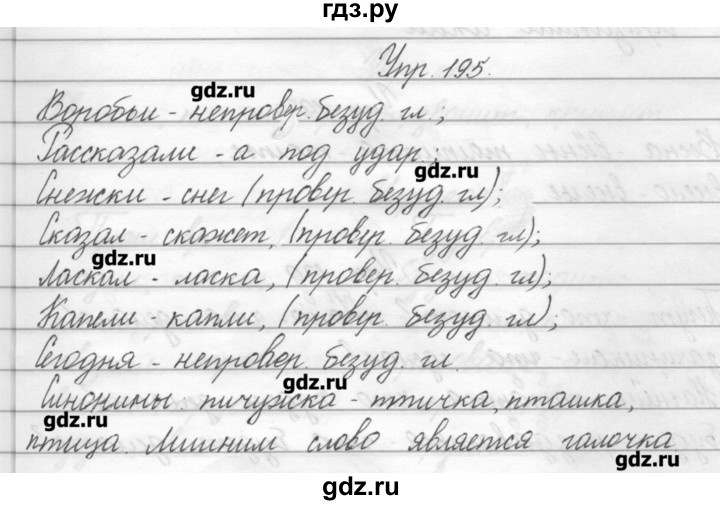 гдз.ру
Упр. 195.
gdz.ru
Воробьи - непровер. безуд. гл.;
Рассказали - а под удар.;
gdz.ru
Снежки - снег (провер. безуд. гл);
Сказал - скажет, (провер. безуд. гл);
gdz.ru
Ласкал - ласка, (провер. безуд. гл);
Капели - капли, (провер. безуд. гл);
Сегодня - непровер. безуд. гл.
gdz.ru
Синонимы пичужка - птичка, пташка,
gdz.ru
птица. Лишним слово является галочка
gdz.ru
gdz.ru